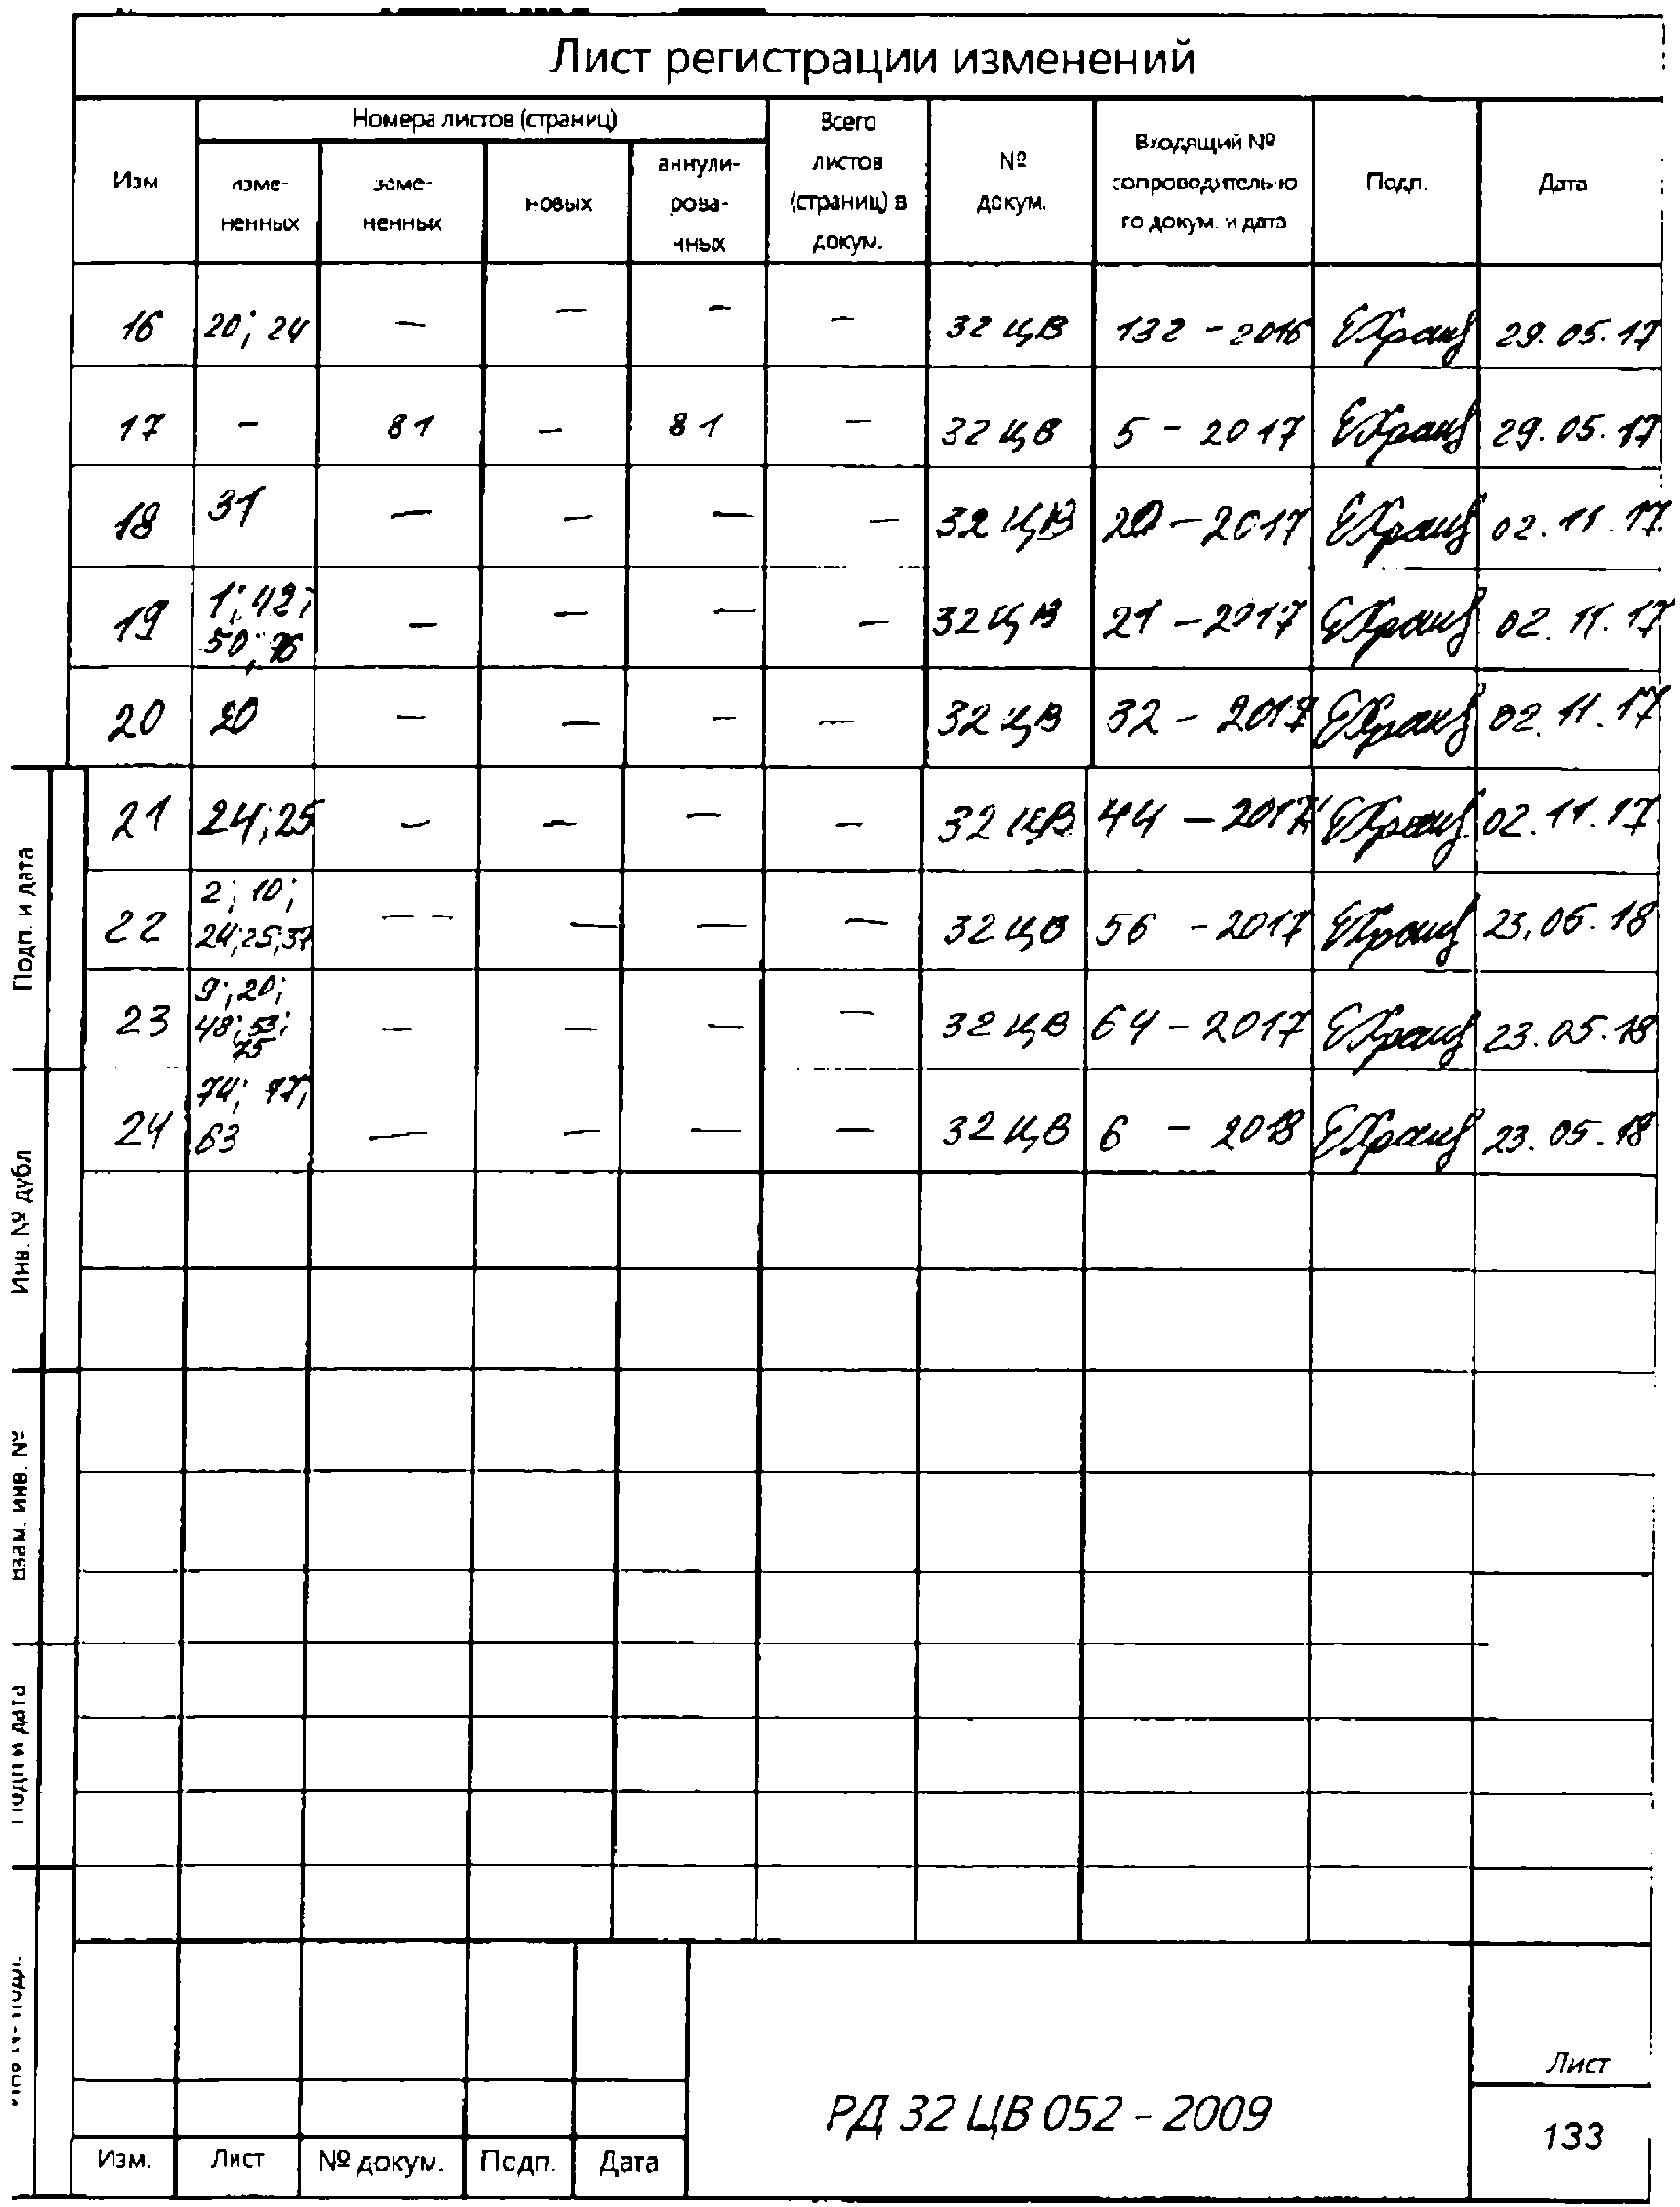 Лист регистрации изменений
Изм
Номера листов (страниц)
изме-
ненных
заме-
ненных
новых
аннули-
рова-
нных
Всего
листов
(страниц) в
докум.
№
докум.
Входящий №
сопроводительно
го докум. и дата
Подп.
Дата
16 20; 24 — — — — 32 ЦВ 132 - 2016 29.05.17
17 - 81 — 81 — 32 ЦВ 5 - 2017 29.05.17
18 31 — — — — 32 ЦВ 20 - 2017 02.11.17
19 1; 42;
50; 76 — — — — 32 ЦВ 21 - 2017 02.11.17
20 20 — — — — 32 ЦВ 32 - 2017 02.11.17
21 24; 25 — — — — 32 ЦВ 44 - 2017 02.11.17
22 2; 10;
24; 25; 37 — — — — 32 ЦВ 56 - 2017 23.05.18
23 9; 20;
48; 53;
75 — — — — 32 ЦВ 64 - 2017 23.05.18
24 74; 77;
63 — — — — 32 ЦВ 6 - 2018 23.05.18
Подп. и дата
Инв. № дубл
Взам. инв. №
Подп и дата
Изм.
Лист
№ докум.
Подп.
Дата
РД 32 ЦВ 052 - 2009
Лист
133